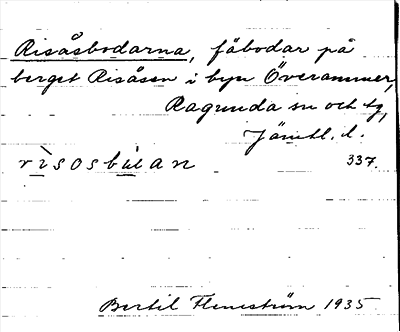 Risåsbodarna, fäbodar på
berget Risåsen i byn Överammer,
Ragunda sn och tg,
Jämtl. l.
risosbu̇an 337.
Bertil Flemström 1935